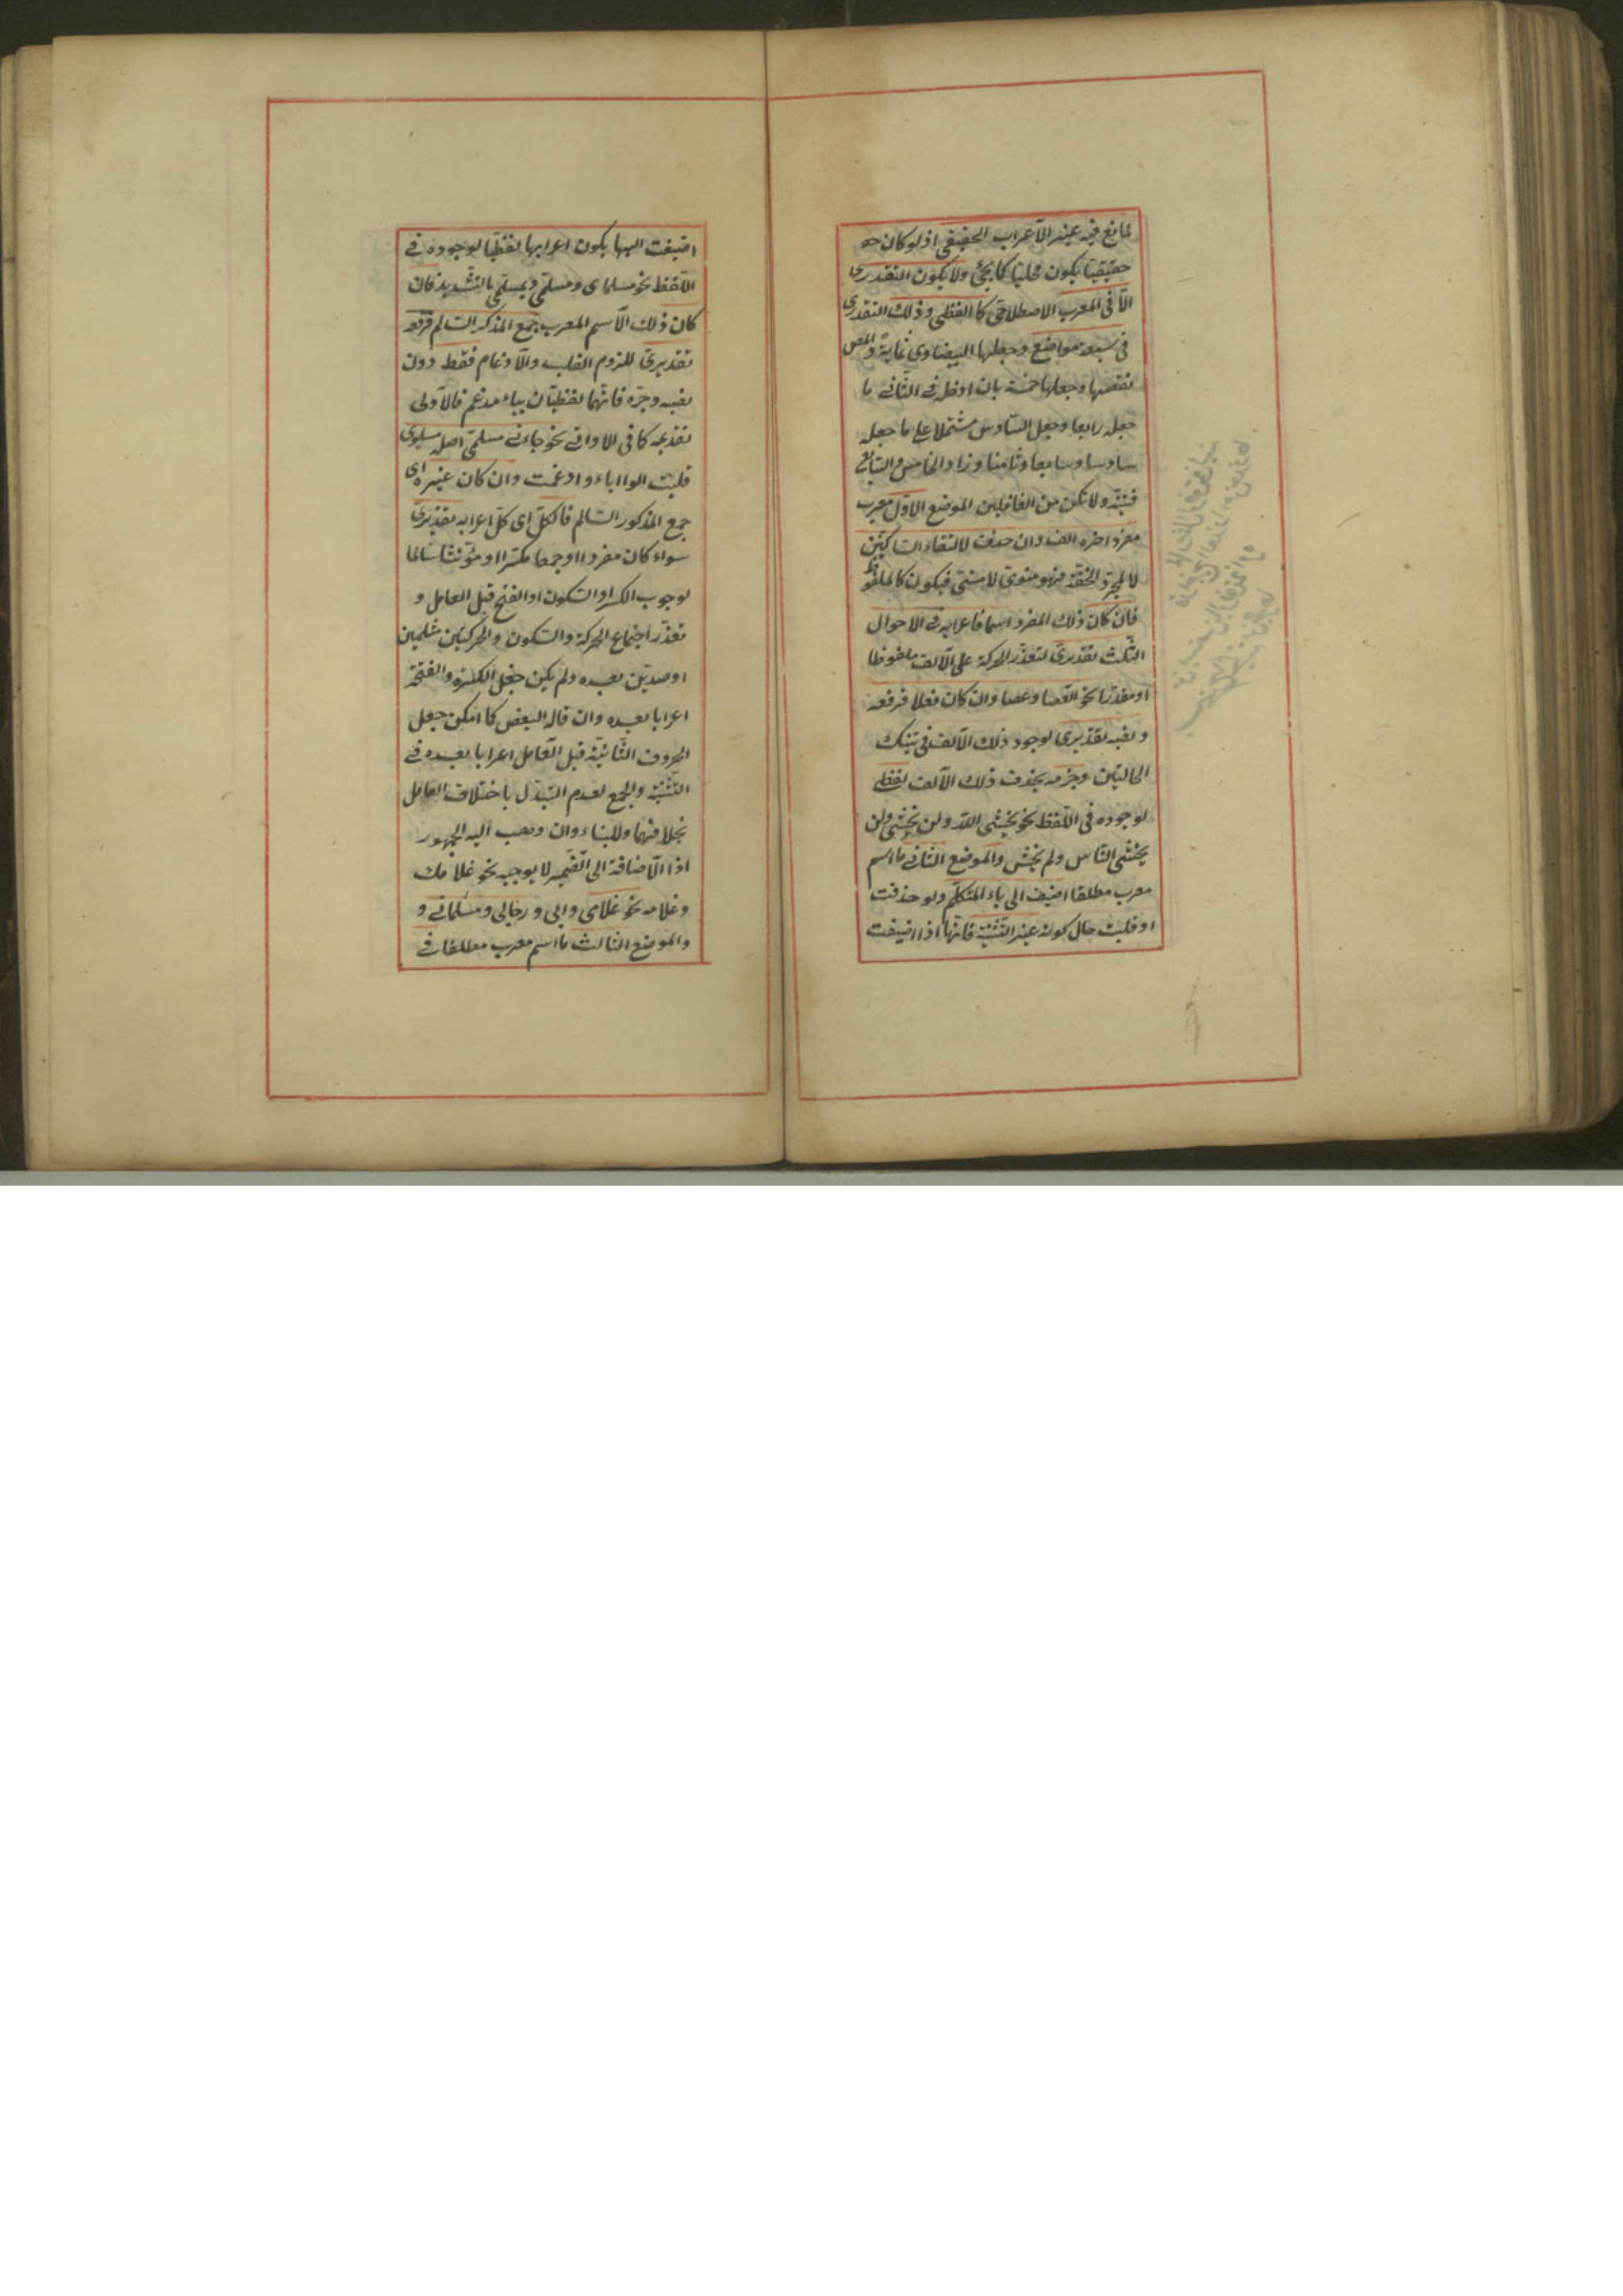 لمانع فيه غير الاعراب الحقيقي اذ لو كان
حقيقيّا يكون محليّا كما يجئ ولا يكون التقديرى
الّا فى المعرب الاصطلاحىّ كاللفظى وذلك التقديرى
فى سبعة مواضع وجعلها البيضاوى ثمانية والمص
نقصها وجعلها خمسة بان ادخل فى الثّانى ما
جعله رابعا وجعل السّادس مشتملا على ما جعله
سادسا وسابعا وثامنا وزاد الخامس والسّابع
فتنبّه ولا تكن من الغافلين الموضع الاوّل معرب
مفرد اخره الف وان حذف لالتقاء السّاكنين
لا لمجرّد الخفّة فهو منوىّ لا منسىّ فيكون كالملفوظ
فان كان ذلك المفرد اسما فاعرابه فى الاحوال
الثّلث تقديرىّ لتعذّر الحركة على الالف ملفوظا
او مقدّرا نحو العصا وعصا وان كان فعلا فرفعه
ونصبه تقديرى لوجود ذلك الالف فى تينك
الحالتين وجزمه بحذف ذلك الالف لفظى
لوجوده فى اللّفظ نحو يخشى اللّه ولن يخشى ولن
يخشى النّاس ولم يخش والموضع الثانى ما اسم
معرب مطلقا اضيف الى ياء المتكلّم ولو حذفت
او قلبت حال كونه غير التّثنية فانّها اذا اضيفت
اضيفت اليها يكون اعرابها لفظيّا لوجوده فى
اللّفظ نحو مسلماى ومسلمىّ وبمسلمىّ بالتّشديد فان
كان ذلك الاسم المعرب جمع المذكر السّالم فرفعه
تقديرىّ للزوم القلب والادغام فقط دون
نصبه وجرّه فانّهما لفظيّان بياء مدغم فالاولى
تقديمه كما فى الاوائى نحو جاءنى مسلمىّ اصله مسلموى
قلبت الواو ياء وادغمت وان كان غيره اى
جمع المذكور السّالم فالكلّ اى كلّ اعرابه تقديرىّ
سواء كان مفردا او جمعا مكسّرا او مؤنّثا سالما
لوجوب الكسر او السّكون او الفتح قبل العامل و
تعذّر اجتماع الحركة والسّكون والحركتين مثلين
او ضدّين بعده ولم يكن جعل الكسرة والفتحة
اعرابا بعده وان قاله البعض كما امكن جعل
الحروف الثّابتة قبل العامل اعرابا بعده فى
التّثنية والجمع لعدم التبدّل باختلاف العامل
بخلافهما وللبناء وان ذهب اليه الجمهور
اذ الاضافة الى الضّمير لا يوجبه نحو غلامك
وغلامه نحو غلامى وابى ورجالى ومسلماتى و
والموضع الثالث ما اسم معرب مطلقا فى